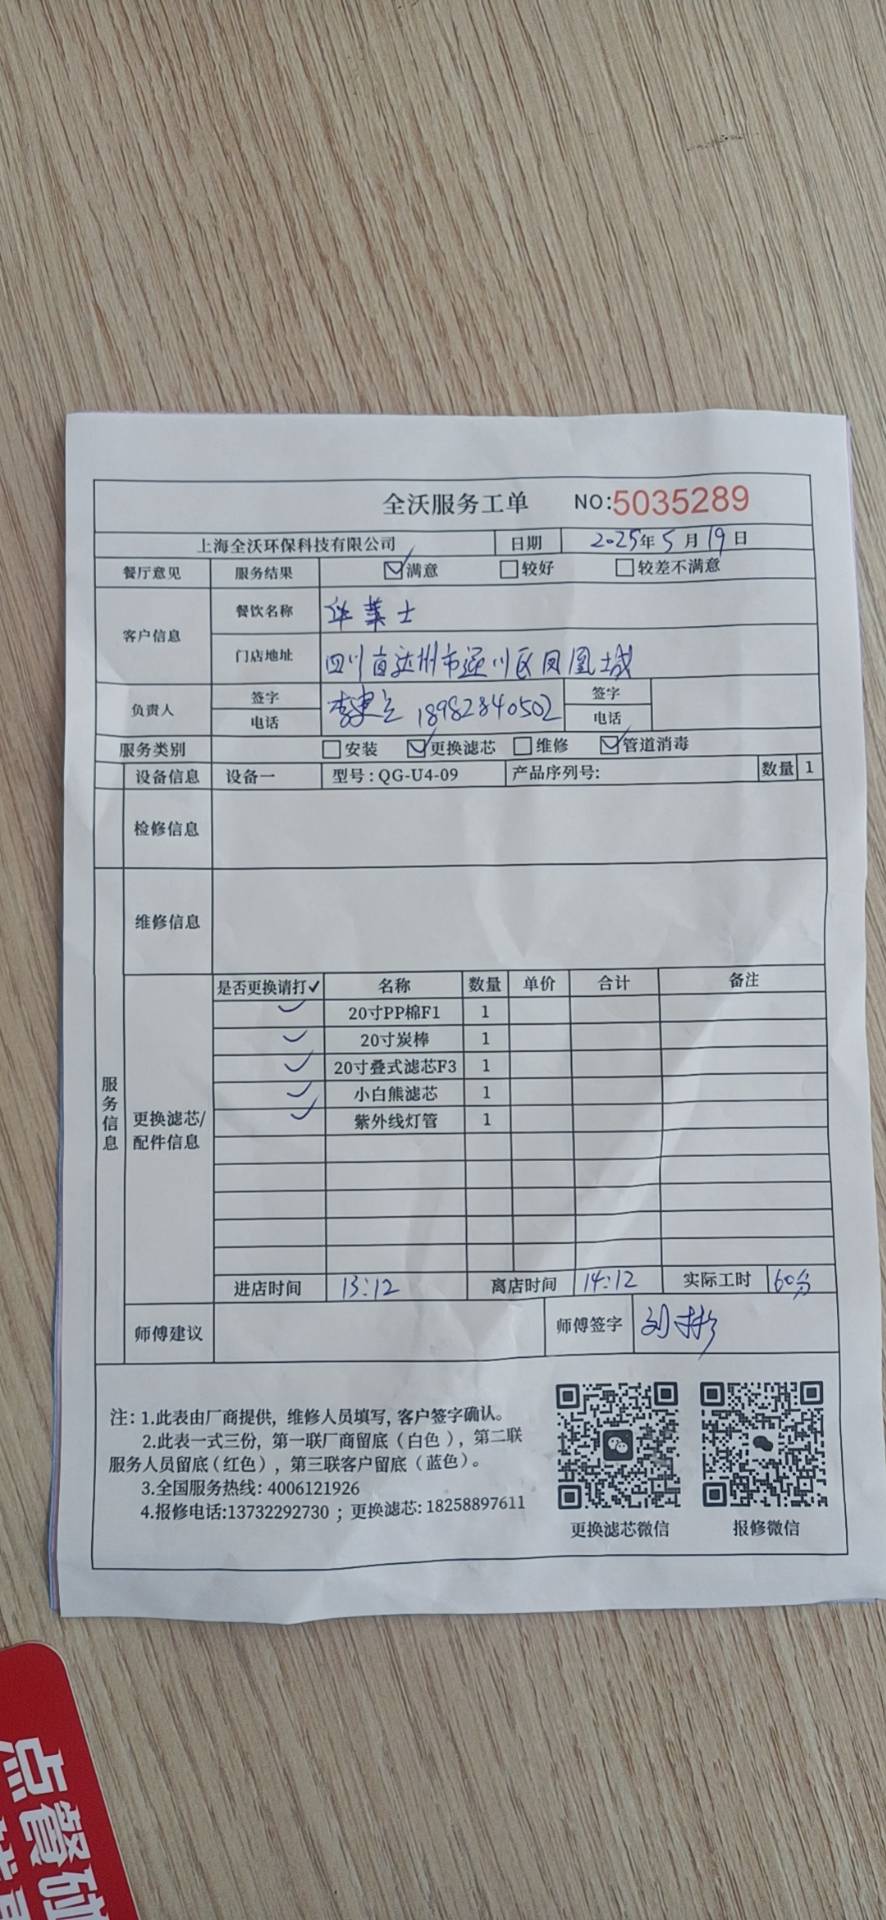 全沃服务工单 NO:5035289
上海全沃环保科技有限公司 日期 2025年5月19日
餐厅意见 服务结果 ☑满意 □较好 □较差不满意
客户信息 餐饮名称 华莱士
门店地址 四川省达州市通川区凤凰城
负责人 签字 签字
电话 18982840502 电话
服务类别 □安装 ☑更换滤芯 □维修 ☑管道消毒
设备信息 设备一 型号:QG-U4-09 产品序列号: 数量 1
检修信息
维修信息
服务信息
更换滤芯/配件信息
是否更换请打✓ 名称 数量 单价 合计 备注
✓ 20寸PP棉F1 1
✓ 20寸炭棒 1
✓ 20寸叠式滤芯F3 1
✓ 小白熊滤芯 1
✓ 紫外线灯管 1
进店时间 13:12 离店时间 14:12 实际工时 60分
师傅建议 师傅签字 刘彬
注:1.此表由厂商提供,维修人员填写,客户签字确认。
2.此表一式三份,第一联厂商留底(白色),第二联
服务人员留底(红色),第三联客户留底(蓝色)。
3.全国服务热线:4006121926
4.报修电话:13732292730;更换滤芯:18258897611
更换滤芯微信 报修微信
点餐